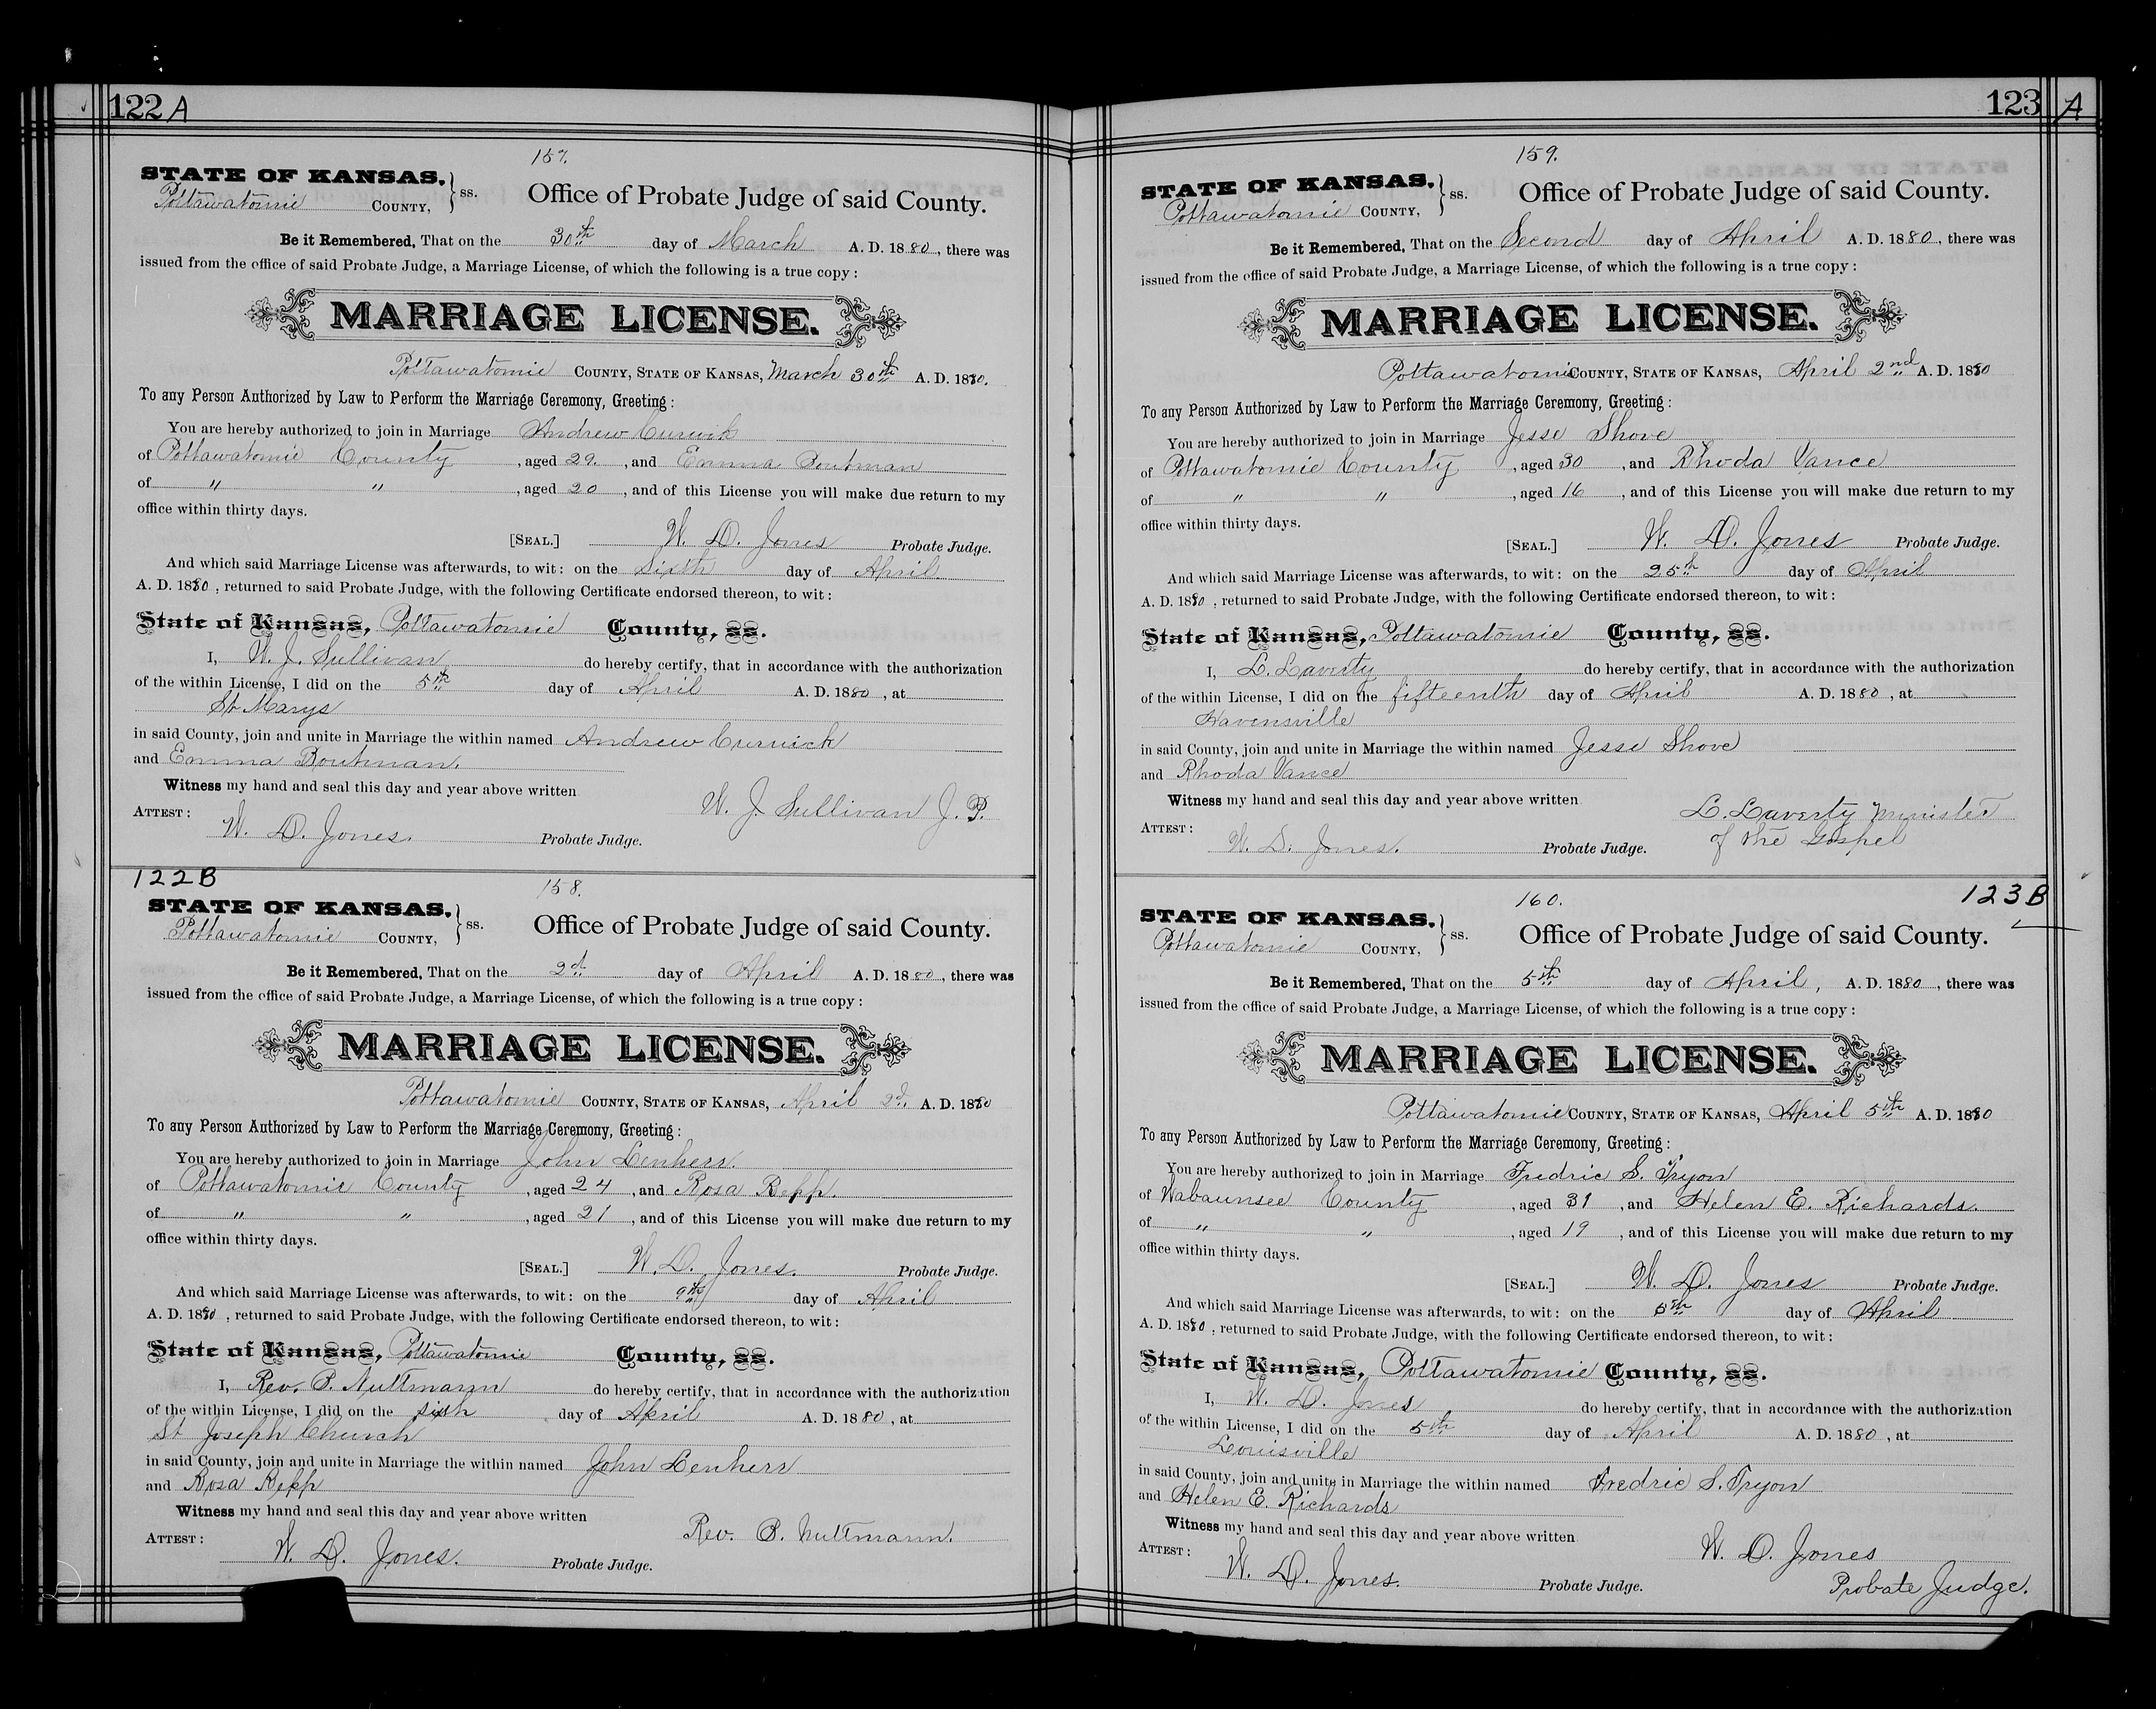 122 A
157.
STATE OF KANSAS,
Pottawatomie COUNTY, } ss. Office of Probate Judge of said County.
Be it Remembered, That on the 30th day of March A. D. 1880, there was
issued from the office of said Probate Judge, a Marriage License, of which the following is a true copy:
MARRIAGE LICENSE.
Pottawatomie COUNTY, STATE OF KANSAS, March 30th A. D. 1880.
To any Person Authorized by Law to Perform the Marriage Ceremony, Greeting:
You are hereby authorized to join in Marriage Andrew
of Pottawatomie County, aged 29., and Emma Boutman
of " ", aged 20, and of this License you will make due return to my
office within thirty days.
[SEAL.] W. D. Jones Probate Judge.
And which said Marriage License was afterwards, to wit: on the Sixth day of April
A. D. 1880, returned to said Probate Judge, with the following Certificate endorsed thereon, to wit:
State of Kansas, Pottawatomie County, ss.
I, W. J. Sullivan do hereby certify, that in accordance with the authorization
of the within License, I did on the 5th day of April A. D. 1880, at
St Marys
in said County, join and unite in Marriage the within named Andrew Curnick
and Emma Boutman.
Witness my hand and seal this day and year above written
W. J. Sullivan J. P.
ATTEST:
W. D. Jones. Probate Judge.
122B
158.
STATE OF KANSAS,
Pottawatomie COUNTY, } ss. Office of Probate Judge of said County.
Be it Remembered, That on the 2d. day of April A. D. 1880, there was
issued from the office of said Probate Judge, a Marriage License, of which the following is a true copy:
MARRIAGE LICENSE.
Pottawatomie COUNTY, STATE OF KANSAS, April 2d. A. D. 1880
To any Person Authorized by Law to Perform the Marriage Ceremony, Greeting:
You are hereby authorized to join in Marriage John Lenherr.
of Pottawatomie County, aged 24, and Rosa Repp.
of " ", aged 21, and of this License you will make due return to my
office within thirty days.
[SEAL.] W. D. Jones. Probate Judge.
And which said Marriage License was afterwards, to wit: on the 9th day of April
A. D. 1880, returned to said Probate Judge, with the following Certificate endorsed thereon, to wit:
State of Kansas, Pottawatomie County, ss.
I, Rev. P. Nuttmann do hereby certify, that in accordance with the authorization
of the within License, I did on the sixth day of April A. D. 1880, at
St Joseph Church
in said County, join and unite in Marriage the within named John Lenherr
and Rosa Repp
Witness my hand and seal this day and year above written
Rev. P. Nuttmann.
ATTEST:
W. D. Jones. Probate Judge.
123 A
159.
STATE OF KANSAS,
Pottawatomie COUNTY, } ss. Office of Probate Judge of said County.
Be it Remembered, That on the Second day of April A. D. 1880, there was
issued from the office of said Probate Judge, a Marriage License, of which the following is a true copy:
MARRIAGE LICENSE.
Pottawatomie COUNTY, STATE OF KANSAS, April 2nd A. D. 1880
To any Person Authorized by Law to Perform the Marriage Ceremony, Greeting:
You are hereby authorized to join in Marriage Jesse Shove
of Pottawatomie County, aged 30, and Rhoda Vance
of " ", aged 16, and of this License you will make due return to my
office within thirty days.
[SEAL.] W. D. Jones Probate Judge.
And which said Marriage License was afterwards, to wit: on the 25th day of April
A. D. 1880, returned to said Probate Judge, with the following Certificate endorsed thereon, to wit:
State of Kansas, Pottawatomie County, ss.
I, L. Laverty do hereby certify, that in accordance with the authorization
of the within License, I did on the fifteenth day of April A. D. 1880, at
Havensville
in said County, join and unite in Marriage the within named Jesse Shove
and Rhoda Vance
Witness my hand and seal this day and year above written
L. Laverty Minister
of the Gospel
ATTEST:
W. D. Jones. Probate Judge.
123B
160.
STATE OF KANSAS,
Pottawatomie COUNTY, } ss. Office of Probate Judge of said County.
Be it Remembered, That on the 5th day of April, A. D. 1880, there was
issued from the office of said Probate Judge, a Marriage License, of which the following is a true copy:
MARRIAGE LICENSE.
Pottawatomie COUNTY, STATE OF KANSAS, April 5th A. D. 1880
To any Person Authorized by Law to Perform the Marriage Ceremony, Greeting:
You are hereby authorized to join in Marriage Fredric S. Tryon
of Wabaunsee County, aged 31, and Helen E. Richards.
of " ", aged 19, and of this License you will make due return to my
office within thirty days.
[SEAL.] W. D. Jones Probate Judge.
And which said Marriage License was afterwards, to wit: on the 5th day of April
A. D. 1880, returned to said Probate Judge, with the following Certificate endorsed thereon, to wit:
State of Kansas, Pottawatomie County, ss.
I, W. D. Jones do hereby certify, that in accordance with the authorization
of the within License, I did on the 5th day of April A. D. 1880, at
Louisville
in said County, join and unite in Marriage the within named Fredric S. Tryon
and Helen E. Richards
Witness my hand and seal this day and year above written
W. D. Jones
Probate Judge.
ATTEST:
W. D. Jones. Probate Judge.